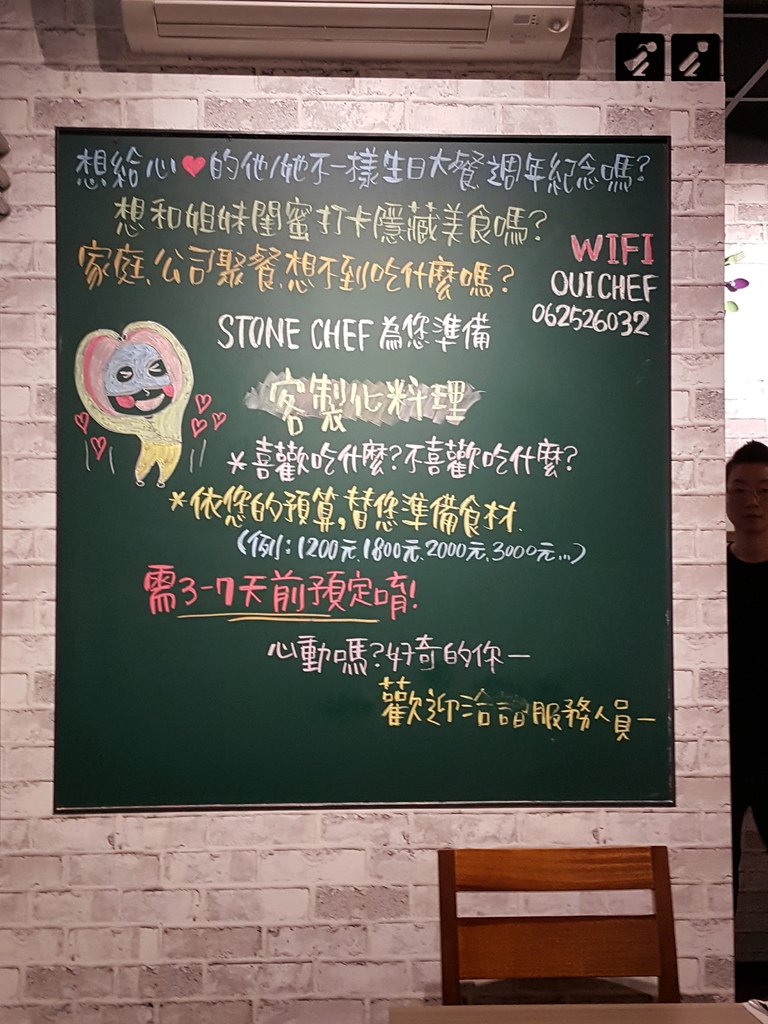 想給心♥的他/她不一樣生日大餐.週年紀念嗎?
想和姐妹閨蜜打卡隱藏美食嗎?
家庭、公司聚餐.想不到吃什麼嗎?
WIFI
OUICHEF
062526032
STONE CHEF 為您準備
客製化料理
*喜歡吃什麼?不喜歡吃什麼?
*依您的預算,替您準備食材.
(例:1200元.1800元.2000元.3000元...)
需3-7天前預定唷!
心動嗎?好奇的你—
歡迎洽詢服務人員—